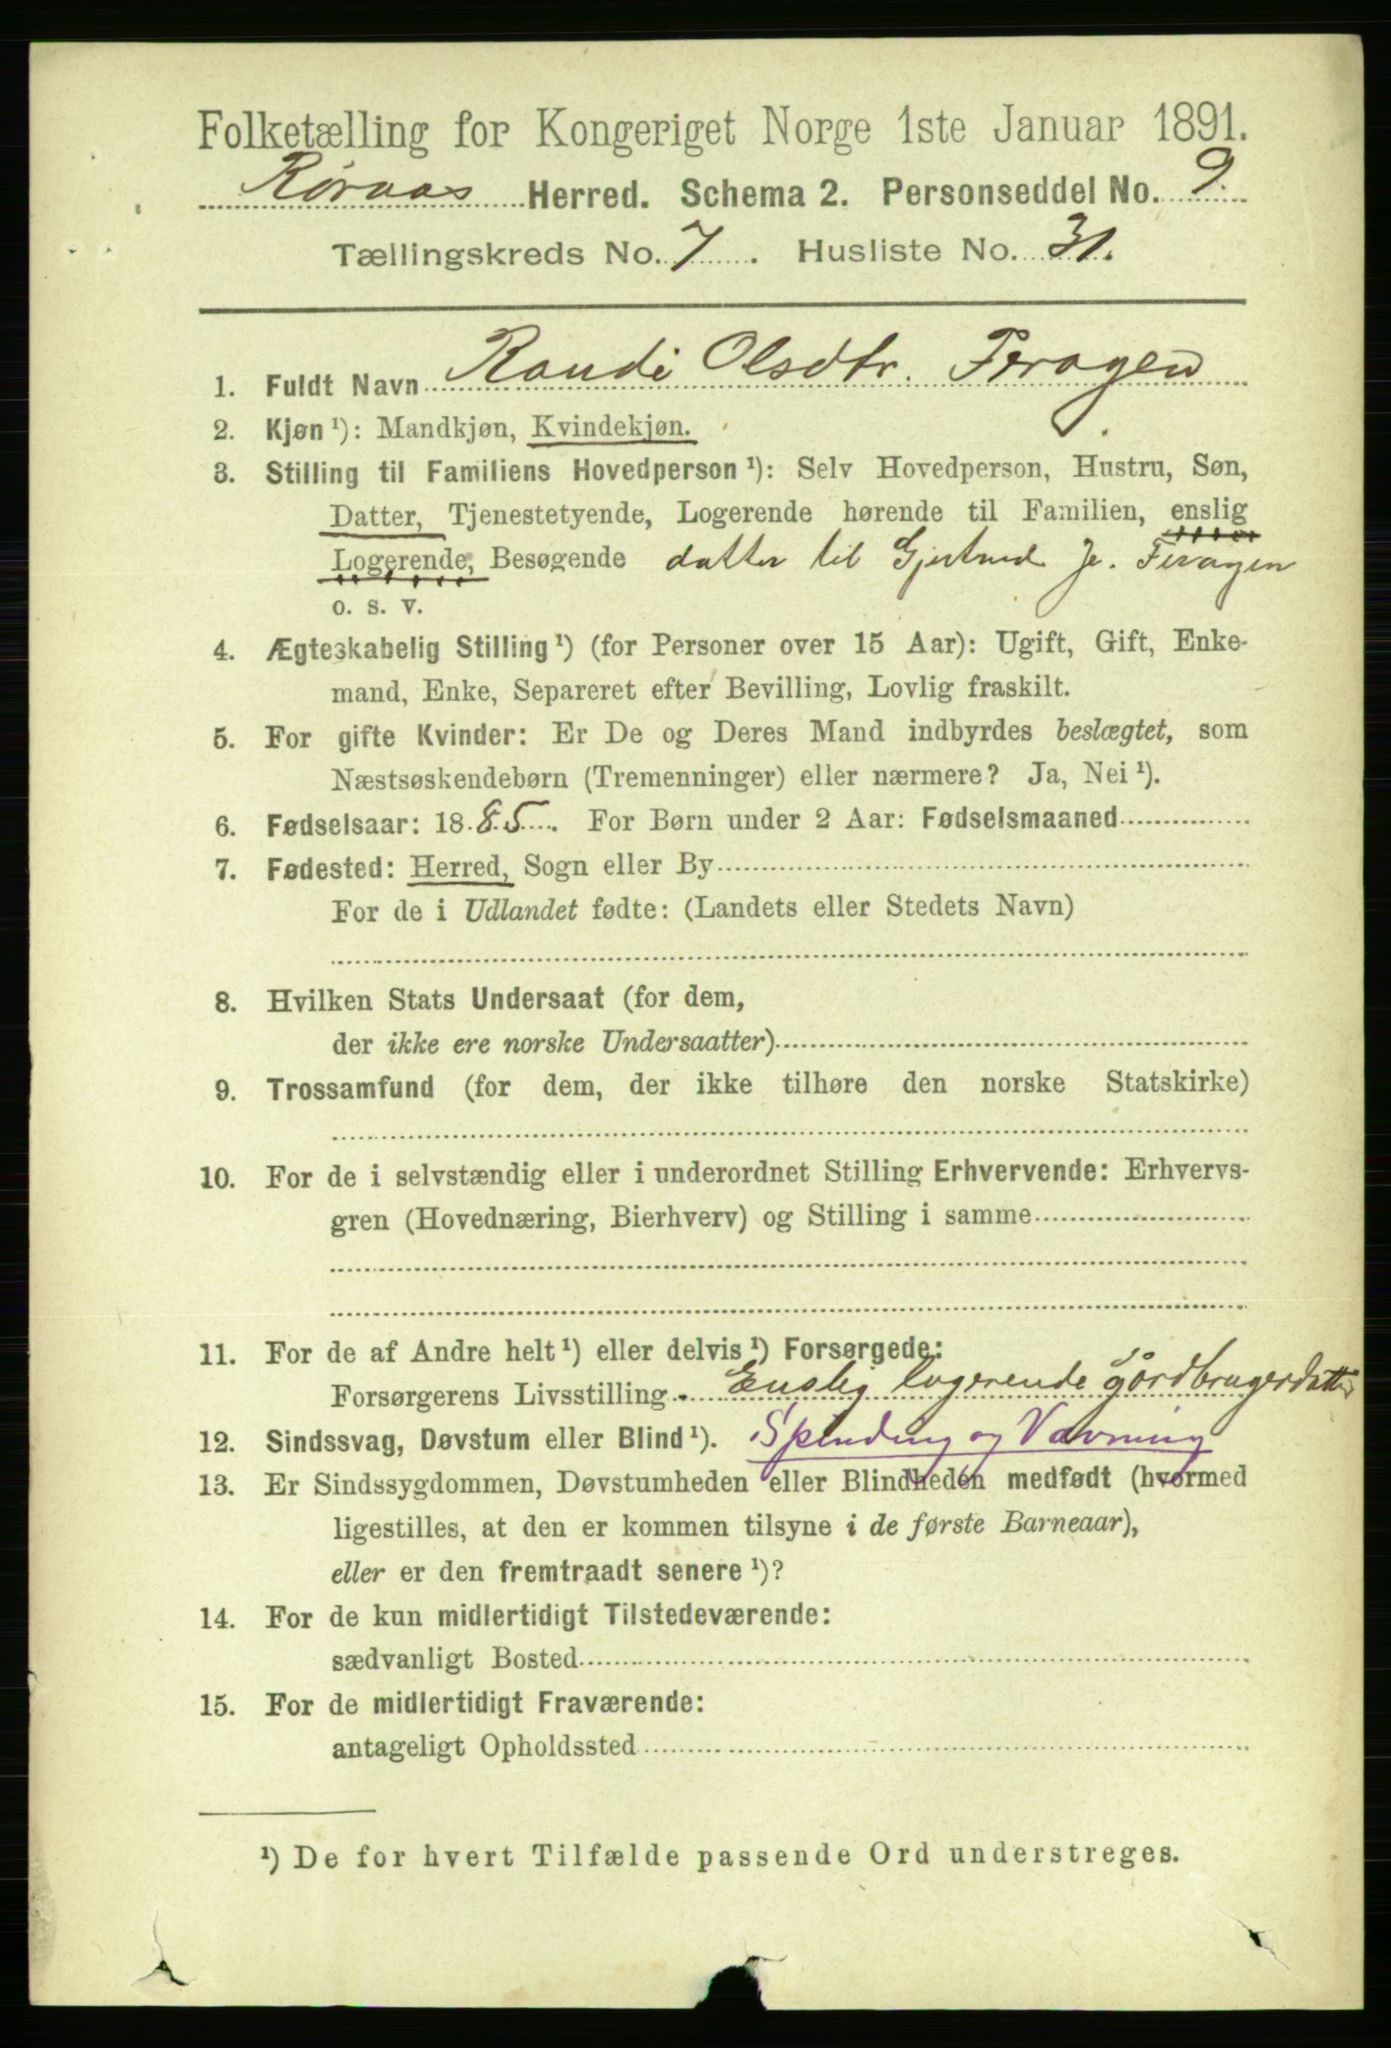 Folketælling for Kongeriget Norge 1ste Januar 1891.
Røraas Herred. Schema 2. Personseddel No. 9.
Tællingskreds No. 7. Husliste No. 31.
1. Fuldt Navn Randi Olsdtr. Feragen
2. Kjøn ¹): Mandkjøn, Kvindekjøn.
3. Stilling til Familiens Hovedperson ¹): Selv Hovedperson, Hustru, Søn,
Datter, Tjenestetyende, Logerende hørende til Familien, enslig
Logerende, Besøgende datter til Gjertrud Js. Feragen
o. s. v.
4. Ægteskabelig Stilling ¹) (for Personer over 15 Aar): Ugift, Gift, Enke-
mand, Enke, Separeret efter Bevilling, Lovlig fraskilt.
5. For gifte Kvinder: Er De og Deres Mand indbyrdes beslægtet, som
Næstsøskendebørn (Tremenninger) eller nærmere? Ja, Nei ¹).
6. Fødselsaar: 1885. For Børn under 2 Aar: Fødselsmaaned
7. Fødested: Herred, Sogn eller By
For de i Udlandet fødte: (Landets eller Stedets Navn)
8. Hvilken Stats Undersaat (for dem,
der ikke ere norske Undersaatter)
9. Trossamfund (for dem, der ikke tilhøre den norske Statskirke)
10. For de i selvstændig eller i underordnet Stilling Erhvervende: Erhvervs-
gren (Hovednæring, Bierhverv) og Stilling i samme
11. For de af Andre helt ¹) eller delvis ¹) Forsørgede:
Forsørgerens Livsstilling. Enslig logerende gårdbrugerdatter
12. Sindssvag, Døvstum eller Blind ¹). Spinding og Vævning
13. Er Sindssygdommen, Døvstumheden eller Blindheden medfødt (hvormed
ligestilles, at den er kommen tilsyne i de første Barneaar),
eller er den fremtraadt senere ¹)?
14. For de kun midlertidigt Tilstedeværende:
sædvanligt Bosted
15. For de midlertidigt Fraværende:
antageligt Opholdssted
¹) De for hvert Tilfælde passende Ord understreges.